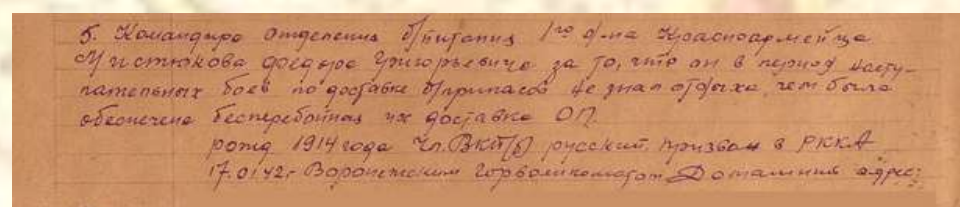 5. Командира отделения б/питания 1го д-на Красноармейца
Мистюкова Федора Григорьевича за то, что он в период насту-
пательных боев по доставке б/припасов не знал отдыха, чем была
обеспечена бесперебойная их доставка ОП.
рожд 1914 года Чл.ВКП(б) русский. призван в РККА
17.01.42г Воронежским Горвоенкоматом Домашний адрес: